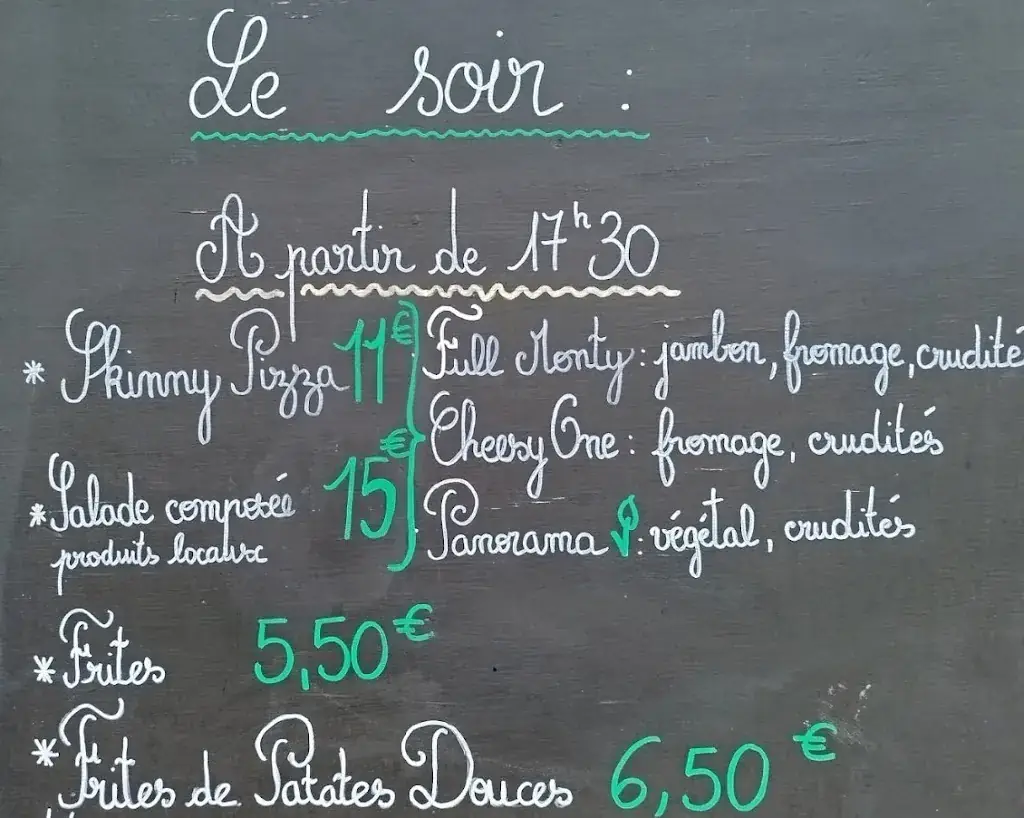 Le soir :
A partir de 17h30
* Skinny Pizza 11€
* Salade composée 15€
produits locaux
Full Monty : jambon, fromage, crudité
Cheesy One : fromage, crudités
Panorama : végétal, crudités
* Frites 5,50€
* Frites de Patates Douces 6,50€